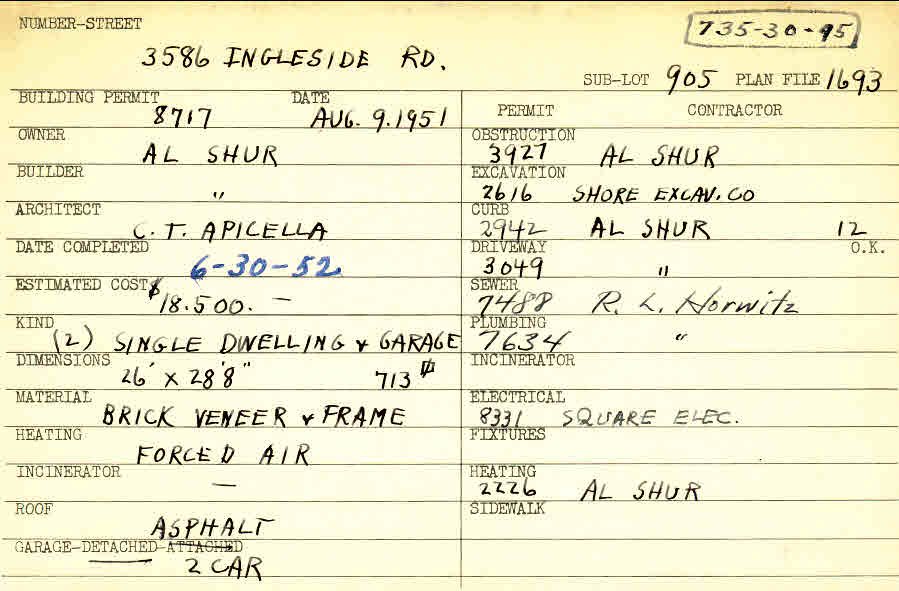 NUMBER-STREET
735-30-95
3586 INGLESIDE RD.
SUB-LOT 905 PLAN FILE 1693
BUILDING PERMIT DATE
8717 AUG. 9.1951
OWNER
AL SHUR
BUILDER
"
ARCHITECT
C. T. APICELLA
DATE COMPLETED
6-30-52
ESTIMATED COST $
18.500. —
KIND
(2) SINGLE DWELLING & GARAGE
DIMENSIONS
26' X 28'8" 713
MATERIAL
BRICK VENEER & FRAME
HEATING
FORCED AIR
INCINERATOR
—
ROOF
ASPHALT
GARAGE-DETACHED-ATTACHED
2 CAR
PERMIT CONTRACTOR
OBSTRUCTION
3927 AL SHUR
EXCAVATION
2616 SHORE EXCAV. CO
CURB
2942 AL SHUR 12
DRIVEWAY O.K.
3049 "
SEWER
7488 R. L. Horwitz
PLUMBING
7634 "
INCINERATOR
ELECTRICAL
8331 SQUARE ELEC.
FIXTURES
HEATING
2226 AL SHUR
SIDEWALK